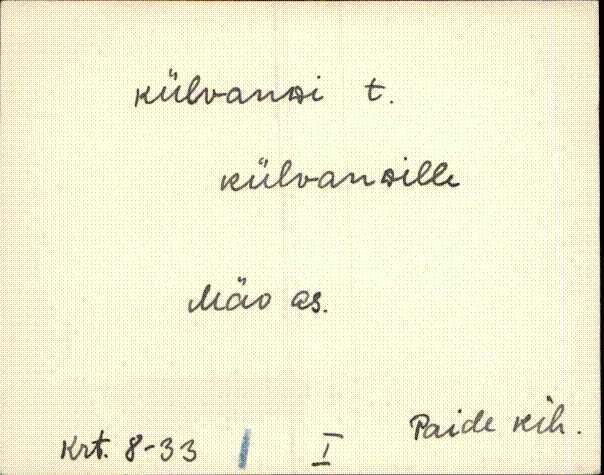 külvandi t.
külvandille
Mäo as.
Krt. 8-33 I Paide kih.